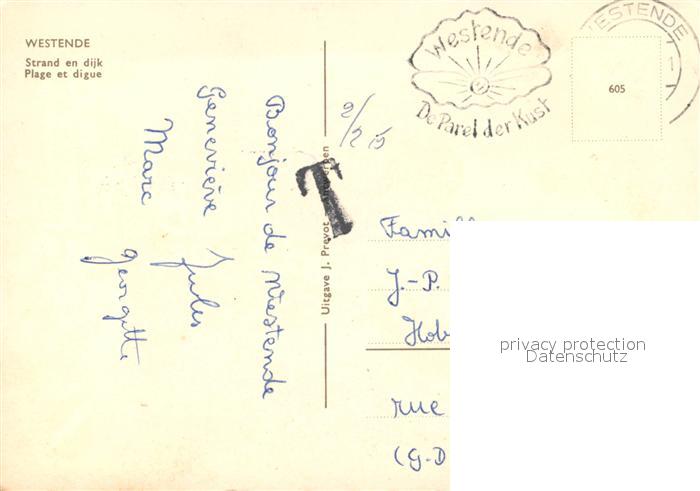 WESTENDE
Strand en dijk
Plage et digue
Bonjour de Westende
Geneviève Jules
Marc Georgette
Uitgave J. Prevot - Antwerpen
T
Westende
De Parel der Kust
WESTENDE
605
J.-P.
rue
(G-D
privacy protection
Datenschutz